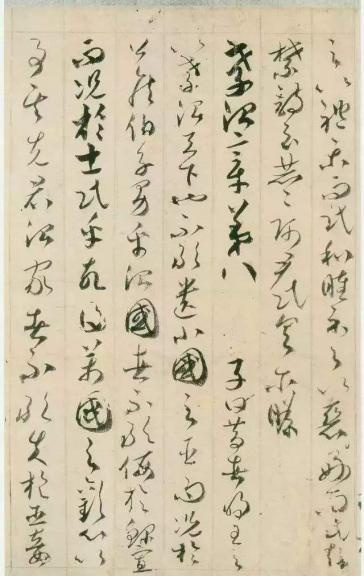 之以禮樂而民和睦示之以惡好而民知
禁詩云赫赫師尹民具爾瞻
孝治章第八 子曰昔者明王之
以孝治天下也不敢遺小國之臣而況於
公侯伯子男乎治國者不敢侮於鰥寡
而況於士民乎故得萬國之歡心以
事其先君治家者不敢失於臣妾